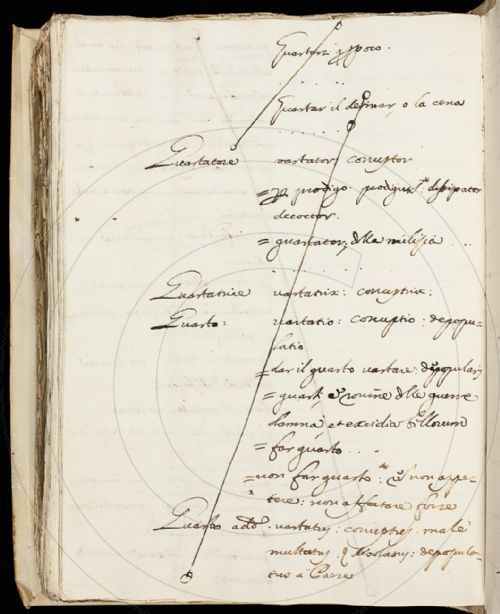 Guastar
Guastar il desinar, o la cena
Guastatore vastator corruptor
= prodigo prodigus dissipator
decoctor.
= guastator della milizia
Guastatrice vastatrix: corruptrix.
Guasto: vastatio: corruptio: depopu-
latio
= dar il guasto vastare depopulari
= guasti e rovine delle guerre
damna, et excidia bellorum
= far guasto
= non far guasto: non appe-
tere: non affatare
Guasto add. vastatus: corruptus male
multatus depopula-
tus a